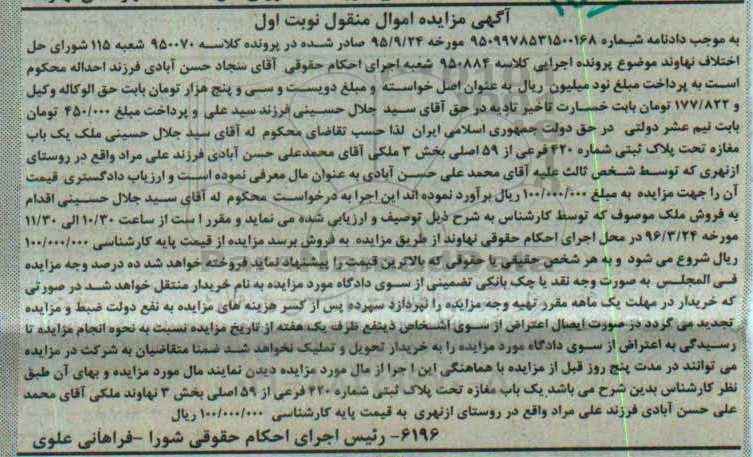 آگهی مزایده اموال منقول نوبت اول
به موجب دادنامه شماره ۹۵۰۹۹۷۸۵۳۱۵۰۰۱۶۸ مورخه ۹۵/۹/۲۴ صادر شده در پرونده کلاسه ۹۵۰۰۷۰ شعبه ۱۱۵ شورای حل
اختلاف نهاوند موضوع پرونده اجرایی کلاسه ۹۵۰۸۸۴ شعبه اجرای احکام حقوقی آقای سجاد حسن آبادی فرزند احداله محکوم
است به پرداخت مبلغ نود میلیون ریال به عنوان اصل خواسته و مبلغ دویست و سی و پنج هزار تومان بابت حق الوکاله وکیل
و ۱۷۷/۸۲۲ تومان بابت خسارت تاخیر تادیه در حق آقای سید جلال حسینی فرزند سید علی و پرداخت مبلغ ۴۵۰/۰۰۰ تومان
بابت نیم عشر دولتی در حق دولت جمهوری اسلامی ایران لذا حسب تقاضای محکوم له آقای سید جلال حسینی ملک یک باب
مغازه تحت پلاک ثبتی شماره ۴۲۰ فرعی از ۵۹ اصلی بخش ۳ ملکی آقای محمدعلی حسن آبادی فرزند علی مراد واقع در روستای
ازنهری که توسط شخص ثالث علیه آقای محمد علی حسن آبادی به عنوان مال معرفی نموده است و ارزیاب دادگستری قیمت
آن را جهت مزایده به مبلغ ۱۰۰/۰۰۰/۰۰۰ ریال برآورد نموده اند این اجرا به درخواست محکوم له آقای سید جلال حسینی اقدام
به فروش ملک موصوف که توسط کارشناس به شرح ذیل توصیف و ارزیابی شده می نماید و مقرر ا ست از ساعت ۱۰/۳۰ الی ۱۱/۳۰
مورخه ۹۶/۳/۲۴ در محل اجرای احکام حقوقی نهاوند از طریق مزایده به فروش برسد مزایده از قیمت پایه کارشناسی ۱۰۰/۰۰۰/۰۰۰
ریال شروع می شود و به هر شخص حقیقی یا حقوقی که بالاترین قیمت را پیشنهاد نماید فروخته خواهد شد ده درصد وجه مزایده
فی المجلس به صورت وجه نقد یا چک بانکی تضمینی از سوی دادگاه مورد مزایده به نام خریدار منتقل خواهد شد در صورتی
که خریدار در مهلت یک ماهه مقرر تهیه وجه مزایده را نپردازد سپرده پس از کسر هزینه های مزایده به نفع دولت ضبط و مزایده
تجدید می گردد در صورت ایصال اعتراض از سوی اشخاص ذینفع ظرف یک هفته از تاریخ مزایده نسبت به نحوه انجام مزایده تا
رسیدگی به اعتراض از سوی دادگاه مورد مزایده را به خریدار تحویل و تملیک نخواهد شد ضمنا متقاضیان به شرکت در مزایده
می توانند در مدت پنج روز قبل از مزایده با هماهنگی این ا جرا از مال مورد مزایده دیدن نمایند مال مورد مزایده و بهای آن طبق
نظر کارشناس بدین شرح می باشد یک باب مغازه تحت پلاک ثبتی شماره ۴۲۰ فرعی از ۵۹ اصلی بخش ۳ نهاوند ملکی آقای محمد
علی حسن آبادی فرزند علی مراد واقع در روستای ازنهری به قیمت پایه کارشناسی ۱۰۰/۰۰۰/۰۰۰ ریال
۶۱۹۶- رئیس اجرای احکام حقوقی شورا -فراهانی علوی